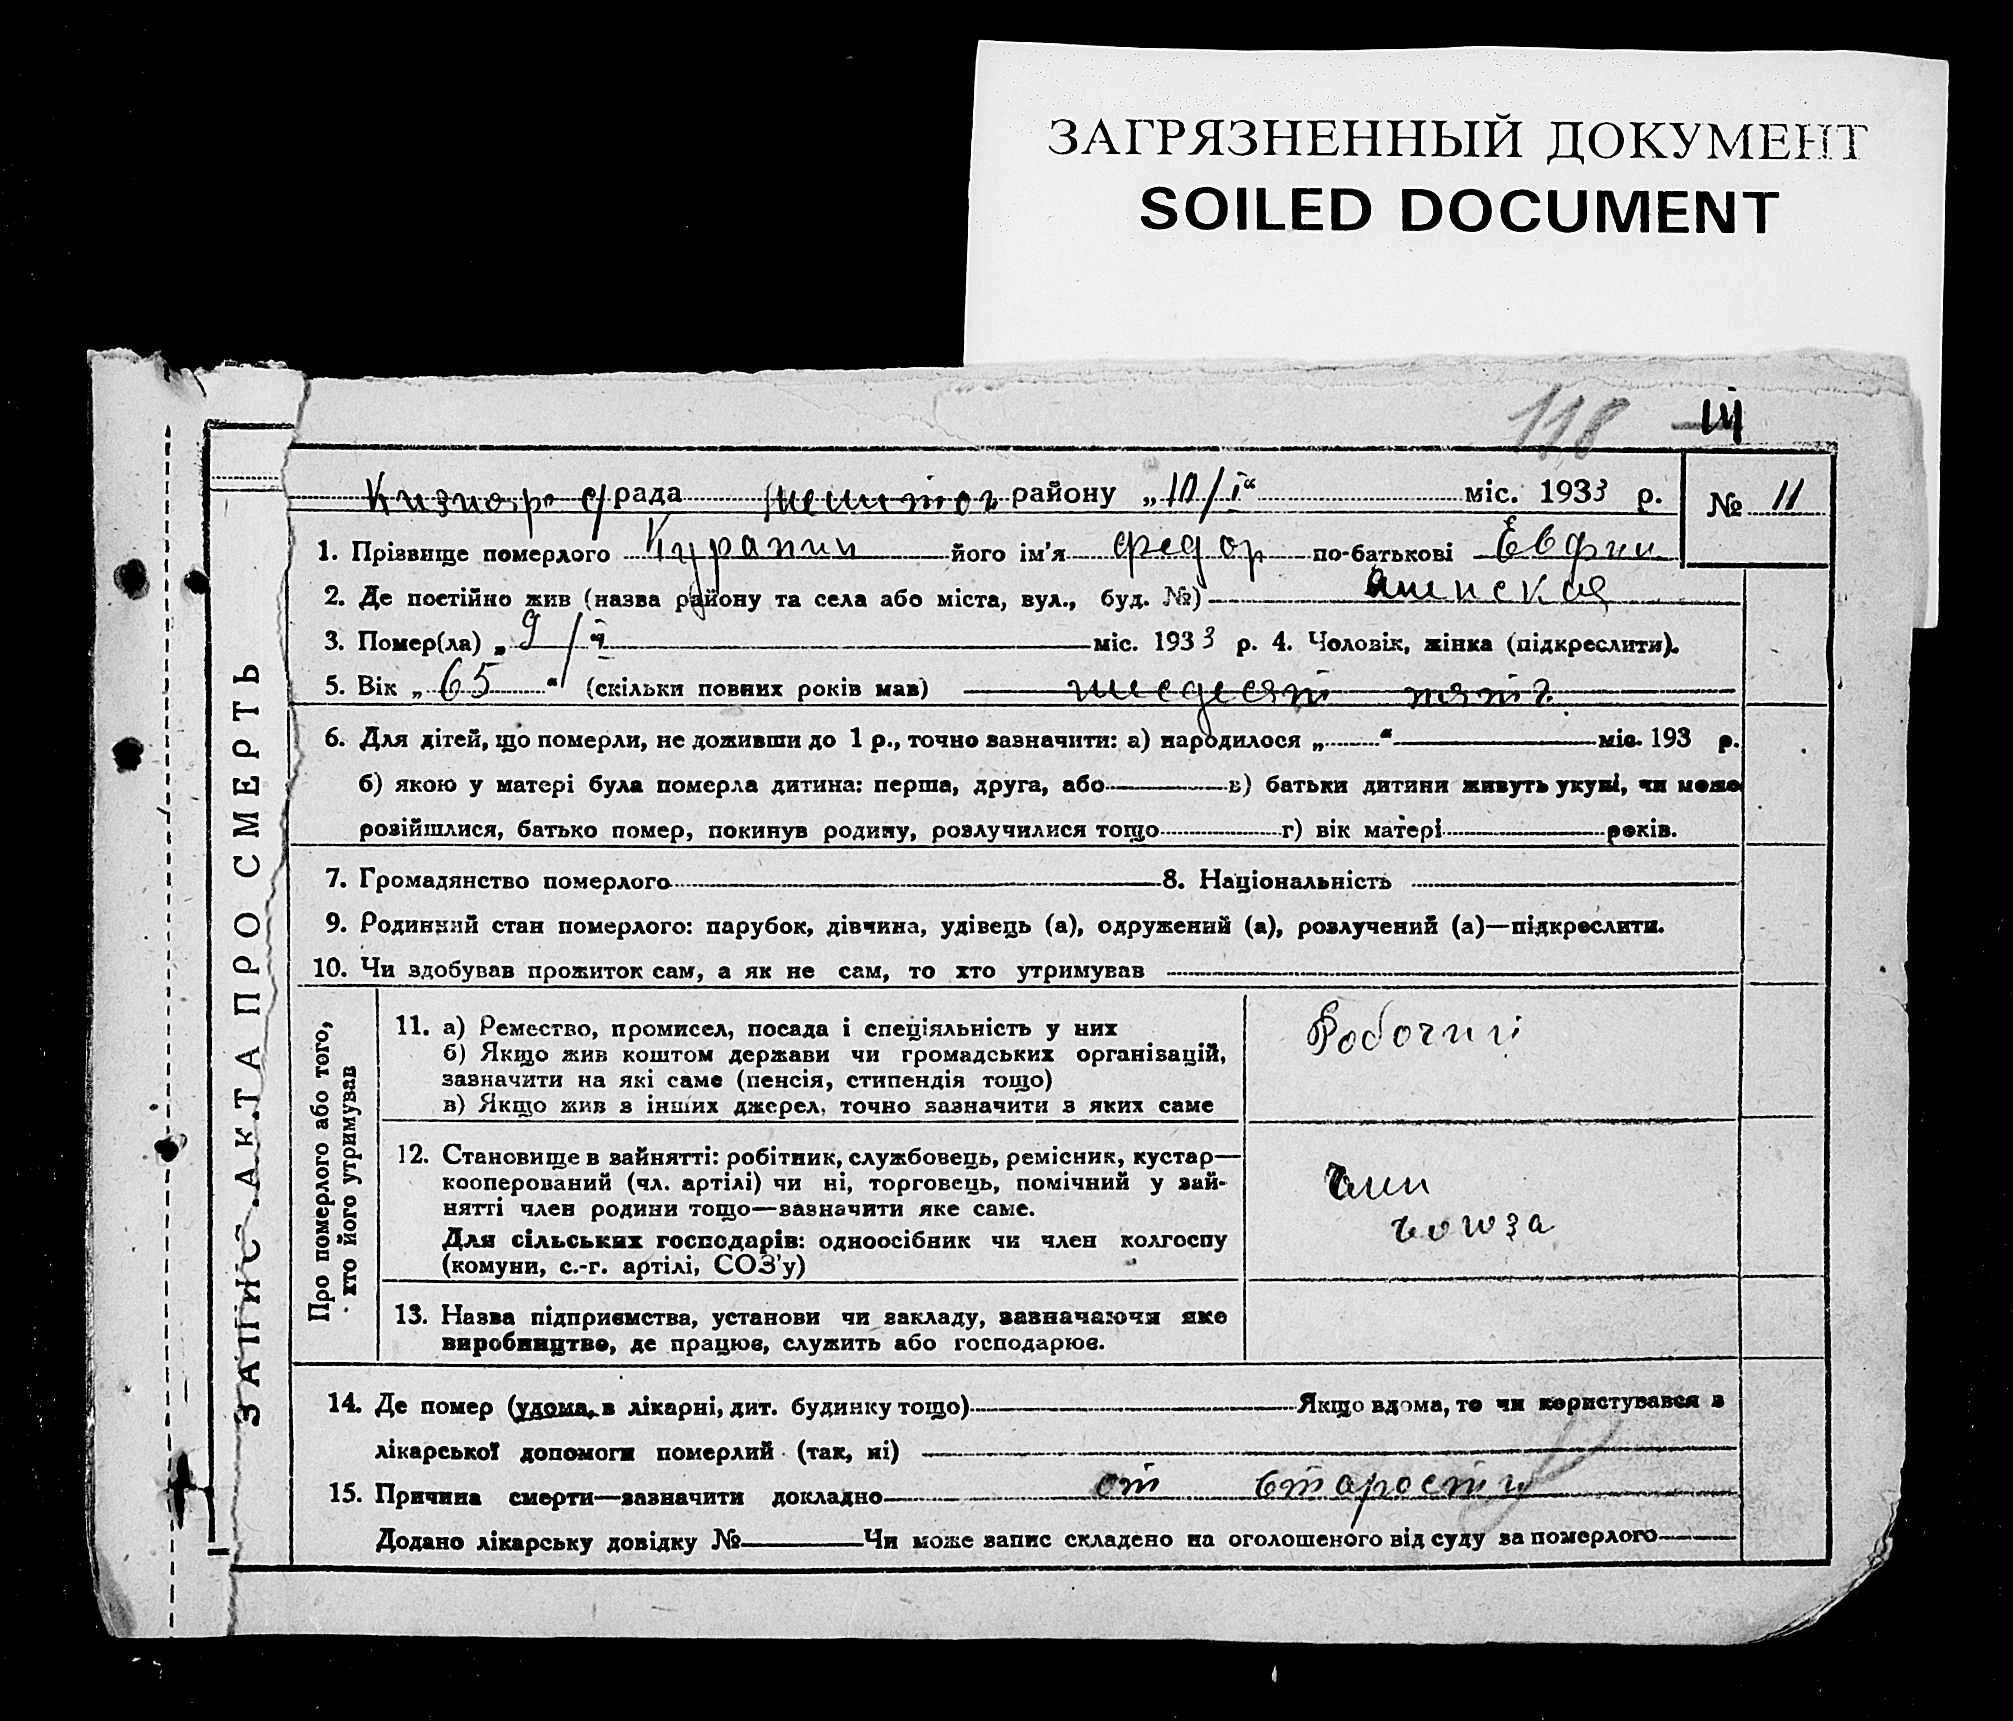 ЗАГРЯЗНЕННЫЙ ДОКУМЕНТ
SOILED DOCUMENT
118
ЗАПИС АКТА ПРО СМЕРТЬ
рада району „10/І“ міс. 1933 р. № 11
1. Прізвище померлого Курапин його ім'я Федор по-батькові Евфим
2. Де постійно жив (назва району та села або міста, вул., буд. №)
3. Помер(ла) „9/І“ міс. 1933 р. 4. Чоловік, жінка (підкреслити).
5. Вік „65“ (скільки повних років мав) шедесят пят
6. Для дітей, що померли, не доживши до 1 р., точно зазначити: а) народилося „ “ міс. 193 р.
б) якою у матері була померла дитина: перша, друга, або в) батьки дитини живуть укупі, чи може
розійшлися, батько помер, покинув родину, розлучилися тощо г) вік матері років.
7. Громадянство померлого 8. Національність
9. Родинний стан померлого: парубок, дівчина, удівець (а), одружений (а), розлучений (а)—підкреслити.
10. Чи здобував прожиток сам, а як не сам, то хто утримував
Про померлого або того,
хто його утримував
11. а) Ремество, промисел, посада і спеціяльність у них
б) Якщо жив коштом держави чи громадських організацій,
зазначити на які саме (пенсія, стипендія тощо)
в) Якщо жив з інших джерел, точно зазначити з яких саме
Робочий
12. Становище в зайнятті: робітник, службовець, ремісник, кустар—
кооперований (чл. артілі) чи ні, торговець, помічний у зай-
нятті член родини тощо—зазначити яке саме.
Для сільських господарів: одноосібник чи член колгоспу
(комуни, с.-г. артілі, СОЗ'у)
союза
13. Назва підприємства, установи чи закладу, зазначаючи яке
виробництво, де працює, служить або господарює.
14. Де помер (удома, в лікарні, дит. будинку тощо) Якщо вдома, то чи користувався з
лікарської допомоги померлий (так, ні)
15. Причина смерти—зазначити докладно от старости
Додано лікарську довідку № Чи може запис складено на оголошеного від суду за померлого